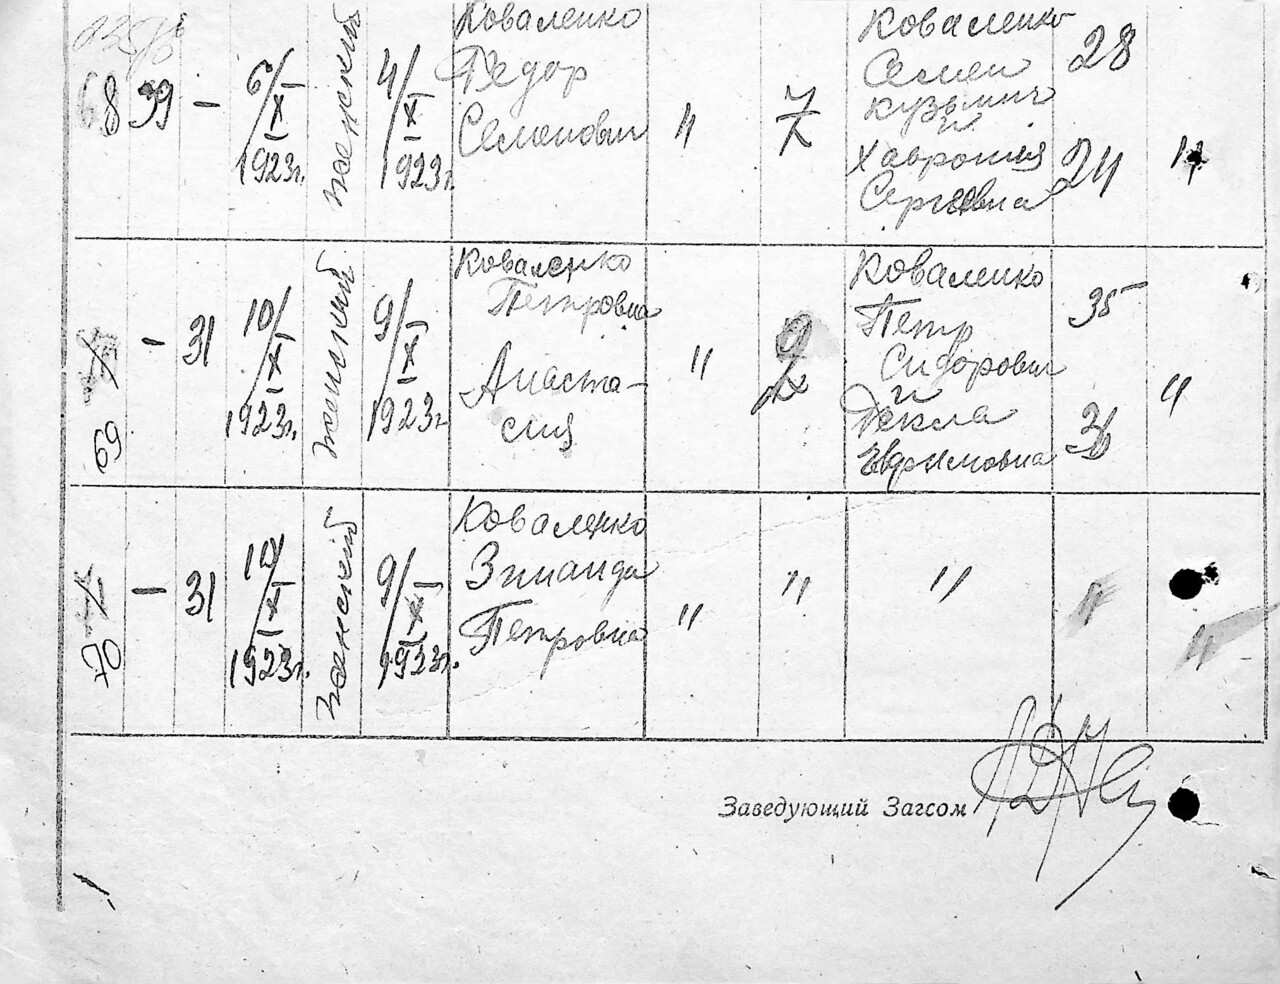 68 39 —
6/X
1923г.
женский
4/X
1923г.
Коваленко
Федор
Семенович
"
7
X
Коваленко
Семен
Кузьмич
и
Хаврония
Сергеевна
28
24
"
69
— 31
10/X
1923г.
женский
9/X
1923г
Коваленко
Петровна
Анаста-
сия
"
9
X
Коваленко
Петр
Сидорович
и
Текла
Евфимовна
35
36
"
70
— 31
10/X
1923г.
женский
9/X
1923г.
Коваленко
Зинаида
Петровна
"
"
"
"
"
Заведующий Загсом